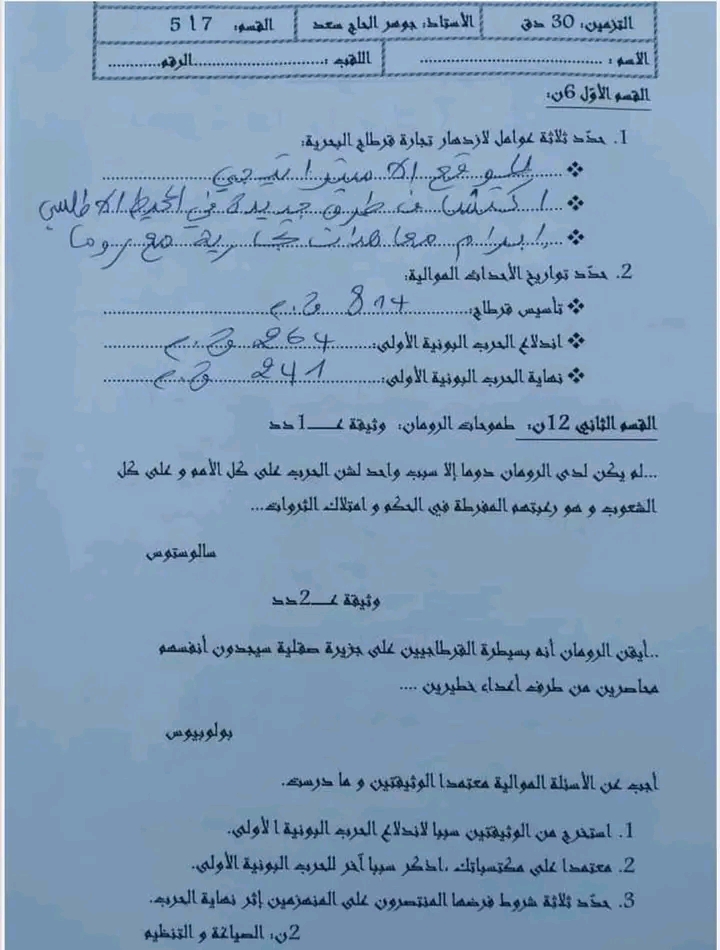 التزمين: 30 دق الأستاذ: جوهر الحاج سعد القسم: 7 أ 5
الاسم: .......................... اللقب: ..........................الرقم...............
القسم الأوّل 6ن:
1. حدّد ثلاثة عوامل لازدهار تجارة قرطاج البحرية:
❖ الموقع الاستراتيجي
❖ اكتشاف طرق جديدة في المحيط الاطلسي
❖ ابرام معاهدات تجارية مع روما
2. حدّد تواريخ الأحداث الموالية:
❖ تأسيس قرطاج: 814 ق.م
❖ اندلاع الحرب البونية الأولى: 264 ق.م
❖ نهاية الحرب البونية الأولى: 241 ق.م
القسم الثاني 12ن: طموحات الرومان: وثيقة عـــ1ـدد
...لم يكن لدى الرومان دوما إلا سبب واحد لشن الحرب على كل الأمم و على كل
الشعوب و هو رغبتهم المفرطة في الحكم و امتلاك الثروات...
سالوستوس
وثيقة عـــ2ـدد
..أيقن الرومان أنه بسيطرة القرطاجيين على جزيرة صقلية سيجدون أنفسهم
محاصرين من طرف أعداء خطيرين ....
بولوبيوس
أجب عن الأسئلة الموالية معتمدا الوثيقتين و ما درست.
1. استخرج من الوثيقتين سببا لاندلاع الحرب البونية الأولى.
2. معتمدا على مكتسباتك ،اذكر سببا آخر للحرب البونية الأولى.
3. حدّد ثلاثة شروط فرضها المنتصرون على المنهزمين إثر نهاية الحرب.
2ن: الصياغة و التنظيم